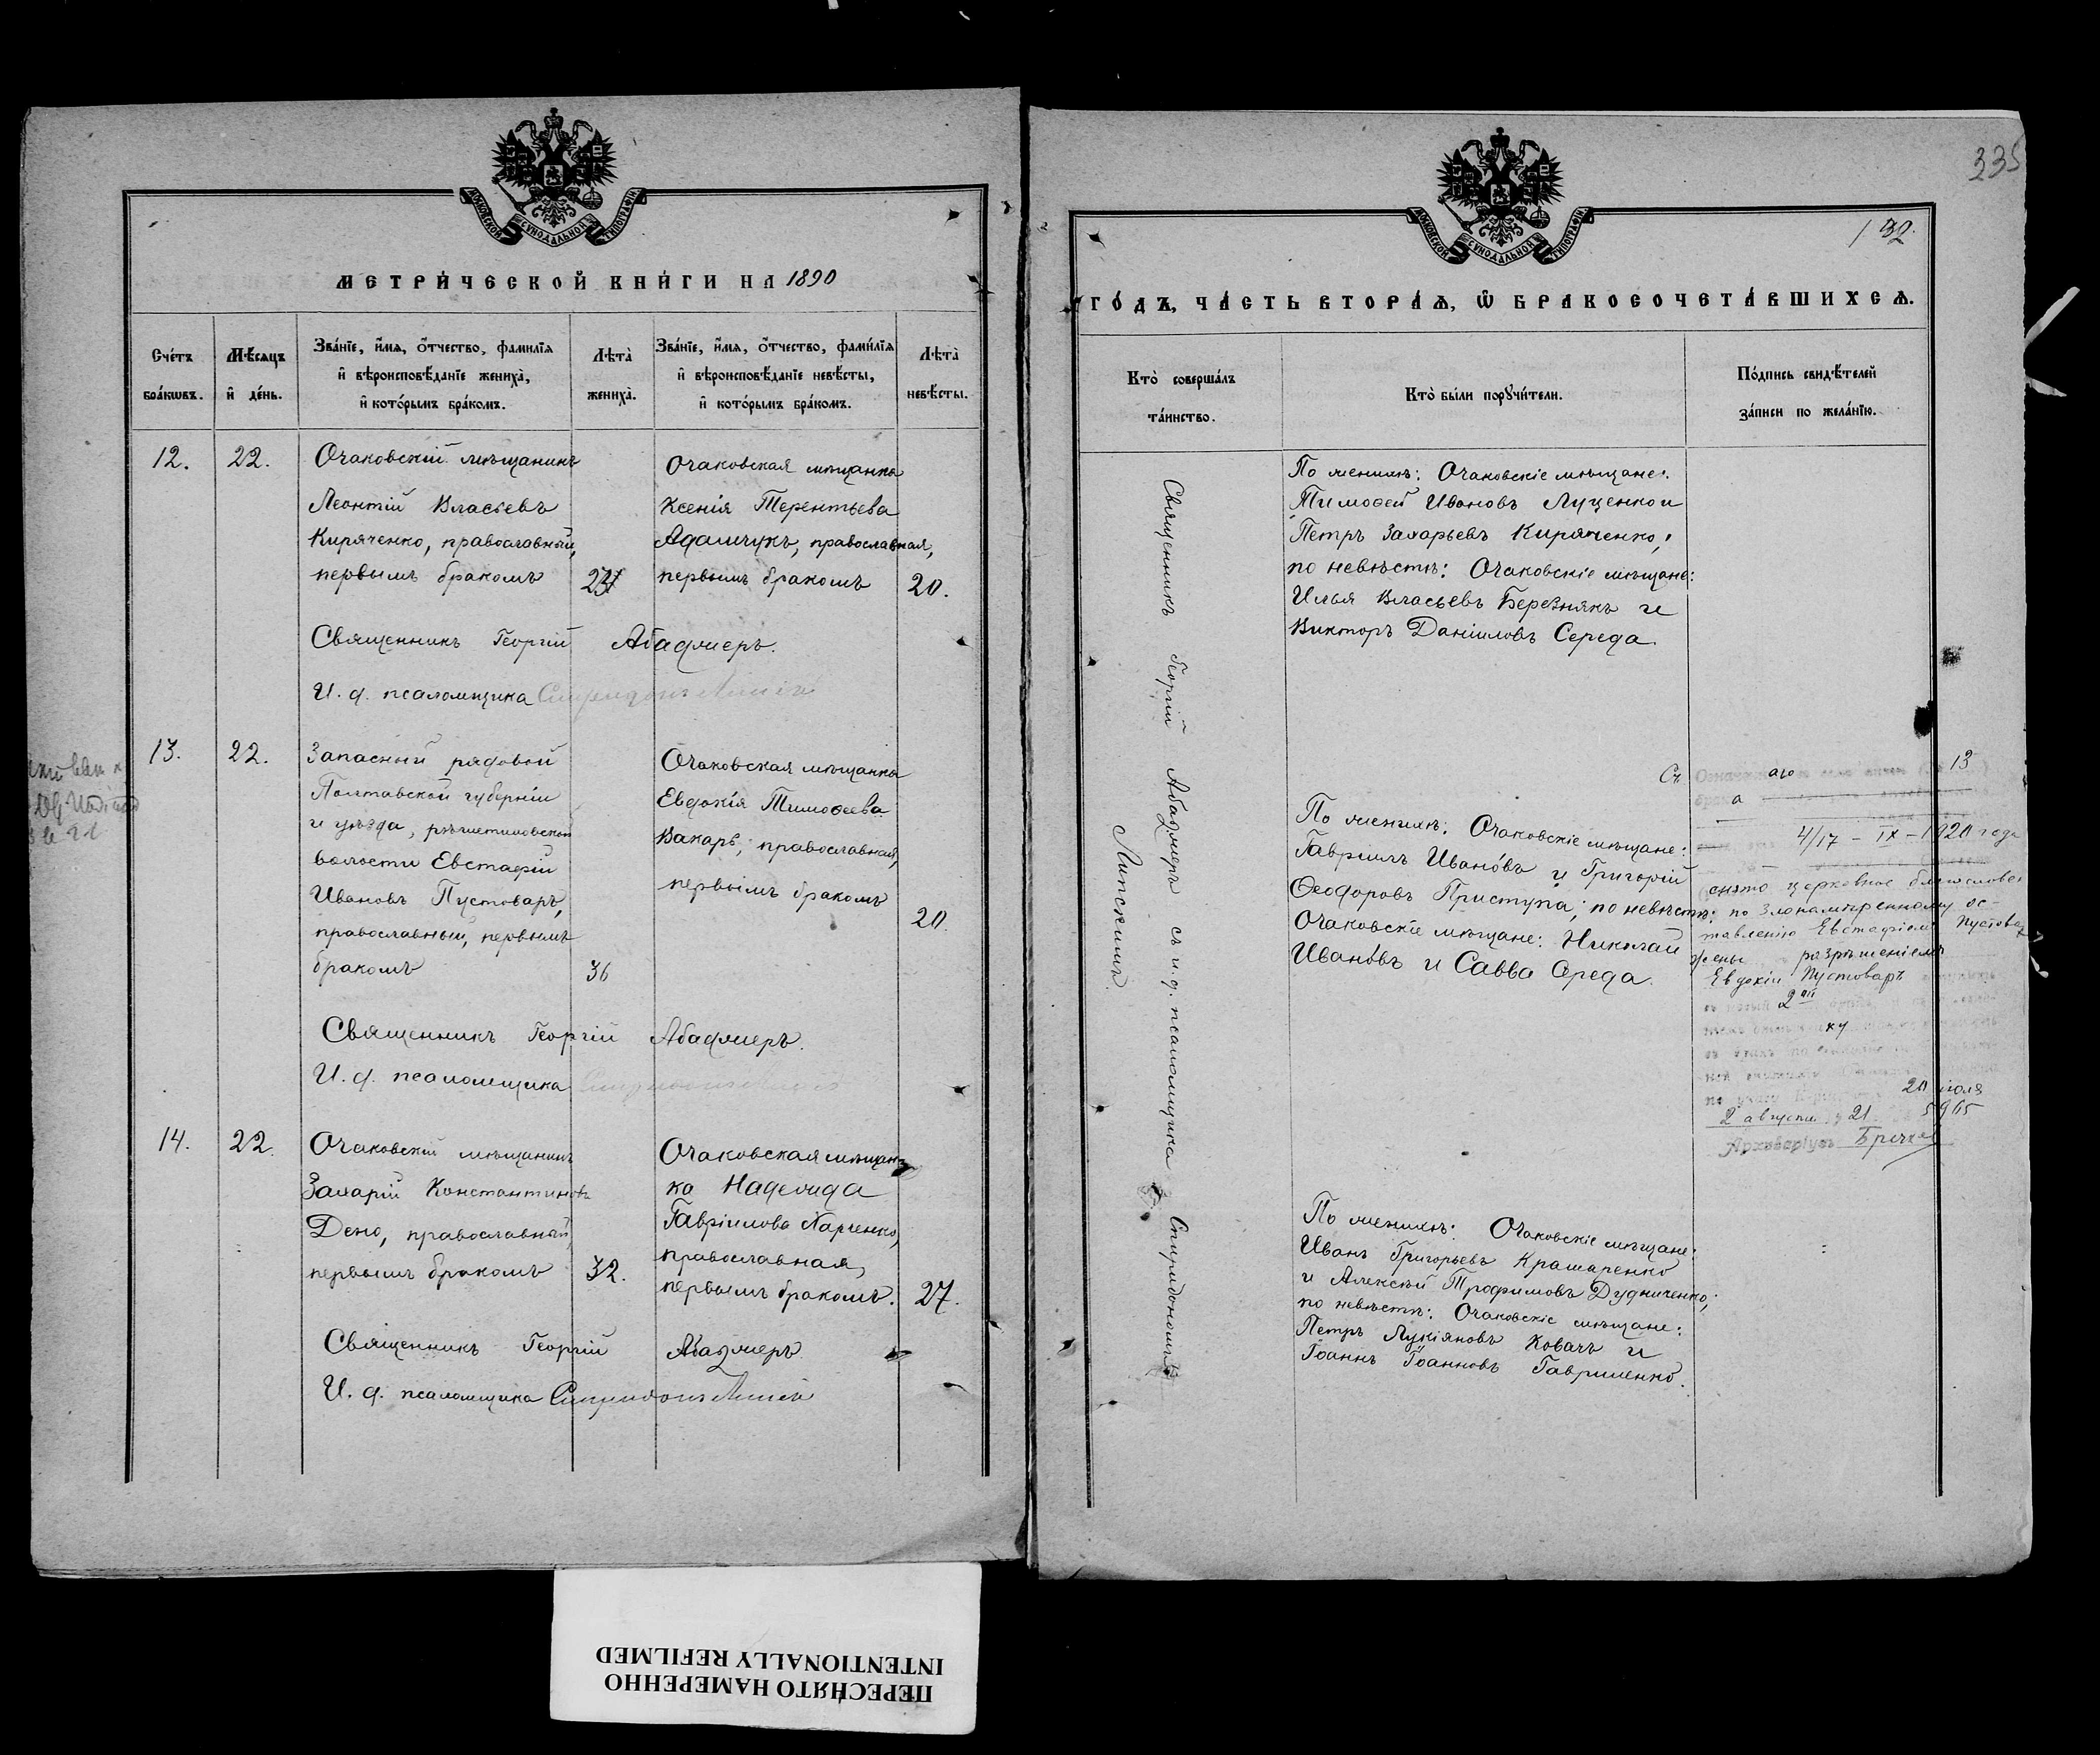 МЕТРИ́ЧЕСКОЙ КНИ́ГИ НА 1890
Сче́тъ бра́кѡвъ.
Мѣ́сѧцъ и҆ де́нь.
Зва́нїе, и҆́мѧ, ѻ҆́тчество, фамилїѧ
и҆ вѣроисповѣ́данїе жениха̀,
и҆ кото́рымъ бра́комъ.
Лѣта̀ жениха̀.
Зва́нїе, и҆́мѧ, ѻ҆́тчество, фами́лїѧ
и҆ вѣроисповѣ́данїе невѣ́сты,
и҆ кото́рымъ бра́комъ.
Лѣта̀ невѣ́сты.
12.
22.
Очаковскій мѣщанинъ
Леонтій Власьевъ
Киряченко, православный,
первымъ бракомъ
Очаковская мѣщанка
Ксенія Терентьева
Адамчукъ, православная,
первымъ бракомъ
20.
Священникъ Георгій Абадмеръ.
И. д. псаломщика Спиридонъ
13.
22.
Запасный рядовой
Полтавской губерніи
и уѣзда, рѣшетиловской
волости Евстафій
Ивановъ Пустоваръ,
православный, первымъ
бракомъ
36
Очаковская мѣщанка
Евдокія Тимоѳеева
Вакаръ, православная,
первымъ бракомъ
20.
Священникъ Георгій Абадмеръ.
И. д. псаломщика
14.
22.
Очаковскій мѣщанинъ
Захарій Константиновъ
Дено, православный,
первымъ бракомъ
32.
Очаковская мѣщан
ка Надежда
Гавріилова Харченко,
православная,
первымъ бракомъ.
27.
Священникъ Георгій Абадмеръ
И. д. псаломщика Спиридонъ
335
132.
ГО́ДЪ, ЧА́СТЬ ВТОРА́Ѧ, Ѡ҆ БРАКОСОЧЕТА́ВШИХСѦ.
Кто̀ соверша́лъ
та́инство.
Кто̀ бы́ли порꙋчи́тели.
По́дпись свидѣ́телей
за́писи по жела́нїю.
Священникъ Георгій Абадмеръ съ и. д. псаломщика Спиридономъ
Липскимъ.
По женихѣ: Очаковскіе мѣщане:
Тимоѳей Ивановъ Луценко и
Петръ Захарьевъ Киряченко;
по невѣстѣ: Очаковскіе мѣщане:
Илья Власьевъ Березнякъ и
Викторъ Даніиловъ Середа.
По женихѣ: Очаковскіе мѣщане:
Гавріилъ Ивановъ и Григорій
Ѳеодоровъ Приступа; по невѣстѣ:
Очаковскіе мѣщане: Николай
Ивановъ и Савва Середа.
Съ аго 13
а
4/17 – IX – 1920 года
снято церковное благослове
по злонамѣренному ос-
тавленію Евстафіемъ Пустовар
жены разрѣшеніемъ
Евдокіи Пустоваръ
2ой
ку
20 іюля
2 августа 21 5965
Архиваріусъ
По женихѣ: Очаковскіе мѣщане:
Иванъ Григорьевъ Крамаренко
и Алексѣй Трофимовъ Дудниченко;
по невѣстѣ: Очаковскіе мѣщане:
Петръ Лукіяновъ Ковачъ и
Іоаннъ Іоанновъ Гавриленко.
ПЕРЕСНЯТО НАМЕРЕННО
INTENTIONALLY REFILMED